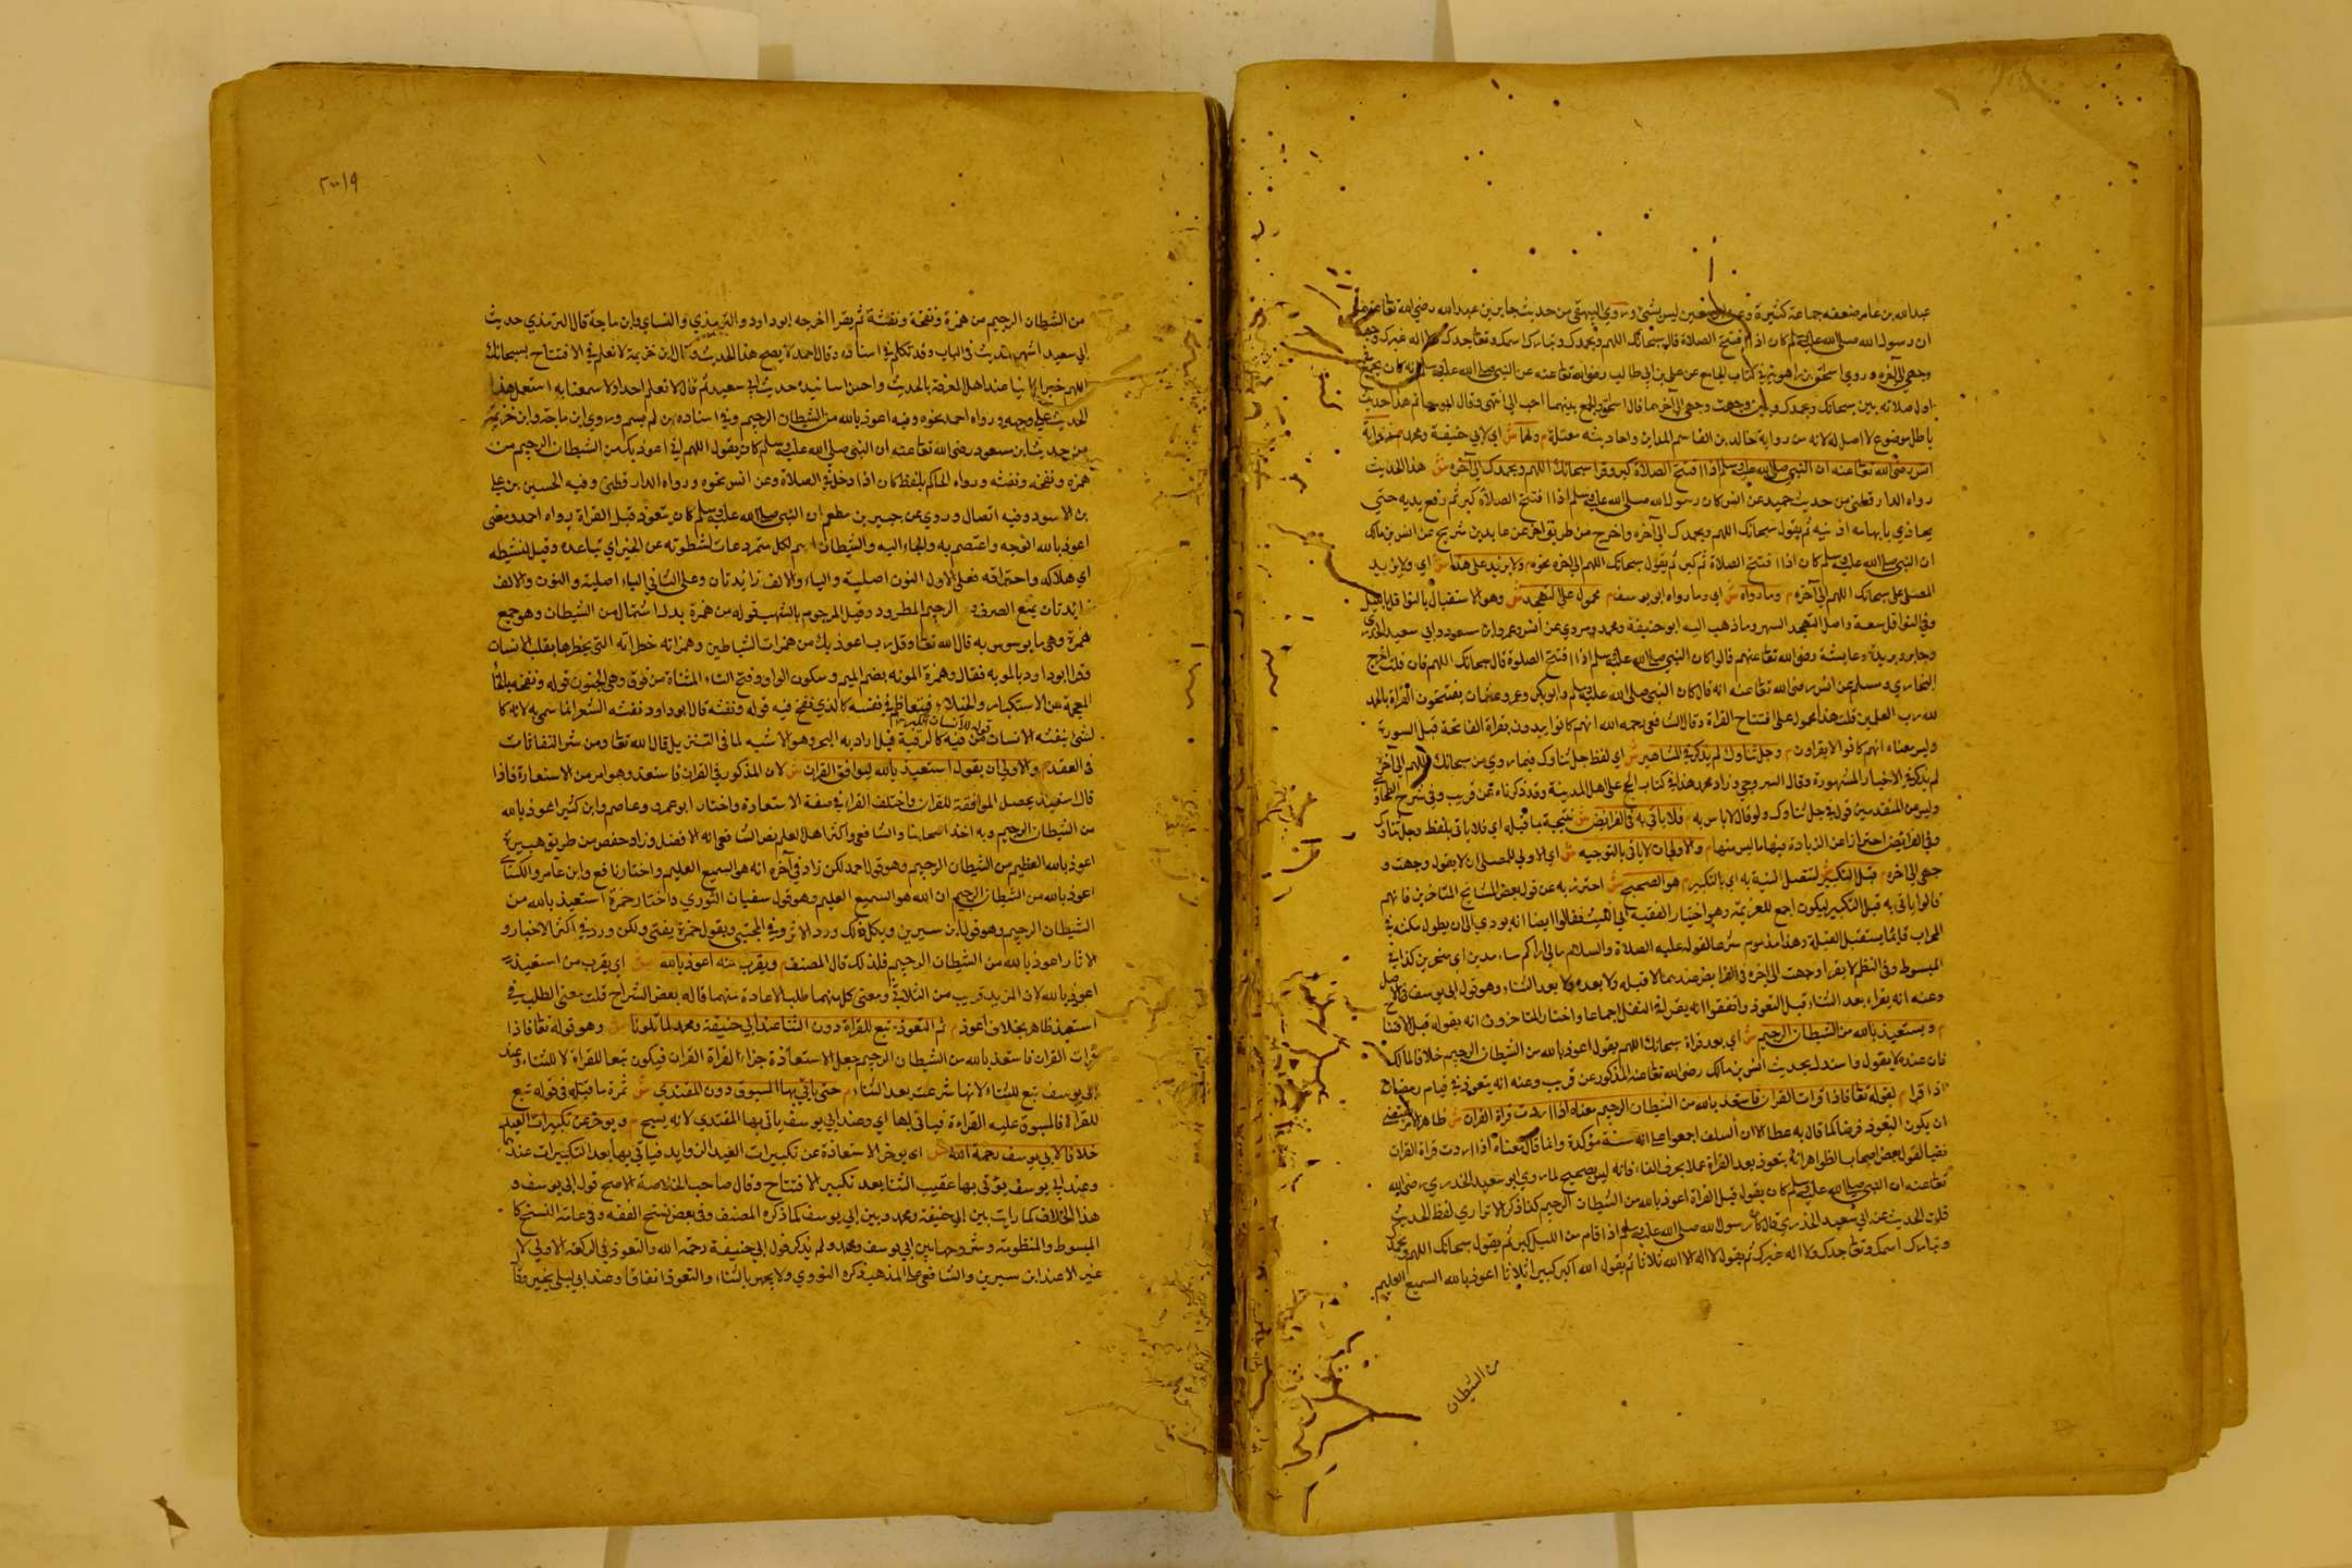 عبدالله بن عامر ضعفه جماعة كثيرة وعن ابن معين ليس بشئ وروي البيهقي من حديث جابر بن عبدالله رضي الله تعا عنهما
ان رسول الله صلى الله عليه وسلم كان اذا افتتح الصلاة قال سبحانك اللهم وبحمدك وتبارك اسمك وتعا جدك ولا اله غيرك وجهت
وجهي الى آخره وروي اسحق بن راهويه في كتاب الجامع عن علي بن ابي طالب رضي الله تعا عنه عن النبي صلى الله عليه وسلم انه كان يجمع في
اول صلاته بين سبحانك وبحمدك وبين وجهت وجهي الى آخرهما قال اسحق والجمع بينهما احب الي انتهى وقال ابو حاتم هذا حديث
باطل موضوع لا اصل له لانه من رواية خالد بن القاسم المدايني واحاديثه معتلة م ولهما ش اي لابي حنيفة ومحمد م رواية
انس رضي الله تعا عنه ان النبي صلى الله عليه وسلم اذا افتتح الصلاة كبر وقرا سبحانك اللهم وبحمدك الى آخره ش هذا الحديث
رواه الدار قطني من حديث حميد عن انس كان رسول الله صلى الله عليه وسلم اذا افتتح الصلاة كبر ثم رفع يديه حتى
يحاذي بابهاميه اذنيه ثم يقول سبحانك اللهم وبحمدك الى آخره واخرج من طريق اخر عن عايد بن شريح عن انس بن مالك
ان النبي صلى الله عليه وسلم كان اذا افتتح الصلاة ثم كبر ثم يقول سبحانك اللهم الى اخره نحوه م ولا يزيد على هذا ش اي ولا يزيد
المصلي على سبحانك اللهم الى آخره م وما رواه ش اي وما رواه ابو يوسف م محمول على التهجد ش وهو الاستقبال بالنوافل بالليل
وفي النوافل سعة واصل التهجد السهر وما ذهب اليه ابو حنيفة ومحمد مروي عن انس وعمر وابن مسعود وابي سعيد الخدري
وجابر وبريدة وعايشة رضي الله تعا عنهم قالوا كان النبي صلى الله عليه وسلم اذا افتتح الصلوة قال سبحانك اللهم فان قلت اخرج
البخاري ومسلم عن انس رضي الله تعا عنه انه قال كان النبي صلى الله عليه وسلم وابو بكر وعمر وعثمان يفتتحون القراة بالحمد
لله رب العلمين قلت هذا محمول على افتتاح القراة وقال الشافعي رحمه الله انهم كانوا يبدون بقراة الفاتحة قبل السورة
وليس معناه انهم كانوا لا يقراون م وجل ثناوك لم يذكر في المشاهير ش اي لفظ جل ثناوك فيما روي من سبحانك اللهم الى آخره
لم يذكر في الاخبار المشهورة وقال السروجي وزاد محمد هذا في كتاب الحج على اهل المدينة وقد ذكرناه عن قريب وفي شرح الطحاوي
وليس من المتقدمين قول في جل ثناوك ولو قال لا باس به م فلا ياتي به في الفرائض ش نتيجة ما قبله اي فلا ياتي بلفظ وجل ثناوك
وفي الفرائض احترازا عن الزيادة فيها ما ليس منها م والاولى ان لا ياتي بالتوجيه ش اي الاولى للمصلى ان لا يقول وجهت و
جهي الى اخره م قبل التكبير لتتصل النية به اي بالتكبير م هو الصحيح ش احترز به عن قول بعض المشايخ المتاخرين فانهم
قالوا ياتي به قبل التكبير ليكون اجمع للعزيمة وهو اختيار الفقيه ابي الليث فقالوا ايضا انه يودي الى ان يطول مكثه في
المحراب قايما يستقبل القبلة وهذا مذموم شرعا لقوله عليه الصلاة والسلام مالي اراكم سامدين اي متحيرين كذا في
المبسوط وفي النظم لا يقرا وجهت الى اخره في الفرايض عندهما لا قبله ولا بعده ولا بعد الثناء وهو قول ابي يوسف في الاصل
وعنه انه يقراء بعد الثناء قبل التعوذ واتفقوا انه يقراء في النفل اجماعا واختار المتاخرون انه يقوله قبل الافتتاح
م ويستعيذ بالله من الشيطان الرجيم ش اي بعد قراة سبحانك اللهم يقول اعوذ بالله من الشيطان الرجيم خلافا لمالك
فان عنده لا يقول واستدل بحديث انس بن مالك رضي الله تعا عنه المذكور عن قريب وعنه انه يتعوذ في قيام رمضان
اذا قرا م لقوله تعا فاذا قرات القران فاستعذ بالله من الشيطان الرجيم معناه اذا اردت قراة القران ش ظاهر الامر يقتضي
ان يكون التعوذ فرضا كما قال به عطا الا ان السلف اجمعوا على انه سنة مؤكدة وانما قال معناه اذا اردت قراة القران
نفيا لقول بعض اصحاب الظواهر انه يتعوذ بعد القراة عملا بحرف الفاء فانه ليس بصحيح لما روي ابو سعيد الخدري رضي الله
تعا عنه ان النبي صلى الله عليه وسلم كان يقول قبل القراة اعوذ بالله من الشيطان الرجيم كذا ذكر الاتراري لفظ الحديث
قلت الحديث عن ابي سعيد الخدري قال كان رسول الله صلى الله عليه وسلم اذا قام من الليل كبر ثم يقول سبحانك اللهم وبحمدك
وتبارك اسمك وتعا جدك ولا اله غيرك ثم يقول لا اله الا الله ثلاثا ثم يقول الله اكبر كبيرا ثلاثا اعوذ بالله السميع العليم
من الشيطان
٢٠٠١٩
من الشيطان الرجيم من همزة ونفخة ونفثة ثم يقرا اخرجه ابو داود والترمذي والنساي وابن ماجة قال الترمذي حديث
ابي سعيد اشهر حديث في الباب وقد تكلم في اسناده وقال احمد لا يصح هذا الحديث وقال ابن خزيمة لا نعلم في الافتتاح بسبحانك
اللهم خبرا ثابتا عند اهل المعرفة بالحديث واحسن اسانيده حديث ابي سعيد ثم قال لا نعلم احدا ولا سمعنا به استعمل هذا
الحديث على وجهه ورواه احمد نحوه وفيه اعوذ بالله من الشيطان الرجيم وفي اسناده من لم يسم وروي ابن ماجة وابن خزيمة
من حديث ابن مسعود رضي الله تعا عنه ان النبي صلى الله عليه وسلم كان يقول اللهم اني اعوذ بك من الشيطان الرجيم من
همزه ونفخه ونفثه ورواه الحاكم بلفظ كان اذا دخل في الصلاة وعن انس نحوه ورواه الدار قطني وفيه الحسين بن علي
بن الاسود وفيه اتصال وروي عن جبير بن مطعم ان النبي صلى الله عليه وسلم كان يتعوذ قبل القراة رواه احمد ومعنى
اعوذ بالله اتوجه واعتصم به والتجاء اليه والشيطان اسم لكل متمرد عات لشطونه عن الخير اي تباعده وقيل لتشيطه
اي هلاكه واحتراقه فعلى الاول النون اصلية والياء والالف زايدتان وعلى الثاني الياء اصلية والنون والالف
زايدتان يمنع الصرف و الرجيم المطرود وقيل المرجوم بالشهب قوله من همزة بدل اشتمال من الشيطان وهو جمع
همزة وهي ما يوسوس به قال الله تعا وقل رب اعوذ بك من همزات الشياطين وهمزاته خطراته التي يخطرها بقلب الانسان
وفسر ابو داود بالموتة فقال وهمزة الموته بضم الميم وسكون الواو وفتح التاء المثناة من فوق وهي الجنون قوله ونفخه بالخا
المعجمة من الاستكبار والخيلاء فيتعاظم في نفسه كالذي نفخ فيه قوله ونفثه قال ابو داود نفثه الشعر انما سمي به لانه كا
لشئ ينفثه الانسان من فيه كالرقية قيل اراد به السحر وهو الاشبه لما في التنزيل قال الله تعا ومن شر النفاثات
في العقد م والاولى ان يقول استعيذ بالله ليوافق القران ش لان المذكور في القران فاستعذ وهو امر من الاستعارة فاذا
قال استعيذ يحصل الموافقة للقران واختلف القراء في صفة الاستعارة واختار ابو عمرو وعاصم وابن كثير اعوذ بالله
من الشيطان الرجيم وبه اخذ اصحابنا والشافعي واكثر اهل العلم نص الشافعي انه الافضل وزاد حفص من طريق هبيرة
اعوذ بالله العظيم من الشيطان الرجيم وهو قول احمد لكن زاد في آخره انه هو السميع العليم واختار نافع وابن عامر والكسائي
اعوذ بالله من الشيطان الرجيم ان الله هو السميع العليم وهو قول سفيان الثوري واختار حمزة استعيذ بالله من
الشيطان الرجيم وهو قول ابن سيرين وبكل ذلك ورد الاثر وفي المجتبى وبقول حمزة يفتى ولكن ورد في اكثر الاخبار و
الاثار اعوذ بالله من الشيطان الرجيم فلذلك قال المصنف م ويقرب منه اعوذ بالله ش اي يقرب من استعيذ
اعوذ بالله لان المزيد قريب من الثلاثي ومعنى كل منهما طلب الاعادة منهما قاله بعض الشراح قلت معنى الطلب في
استعيذ ظاهر بخلاف اعوذ م ثم التعوذ تبع للقراة دون الثنا عند ابي حنيفة ومحمد لما تلونا ش وهو قوله تعا فاذا
قرات القران فاستعذ بالله من الشيطان الرجيم جعل الاستعاذة جزاء القراة القران فيكون تبعا للقراة لا للثناء وعند
ابي يوسف تبع للثناء لانها شرعت بعد الثناء م حتى ياتي بها المسبوق دون المقتدي ش ثمرة ما قبله في قوله تبع
للقراة فالمسبوق عليه القراءة فياتي بها اي وعند ابي يوسف ياتي بها المقتدي لانه يسبح م ويوخر عن تكبيرات العيد
خلافا لابي يوسف رحمة الله ش اي يوخر الاستعاذة عن تكبيرات العيد الزوايد فياتي بها بعد التكبيرات عندهما
وعند ابي يوسف يؤتى بها عقيب الثنا بعد تكبير الافتتاح وقال صاحب الخلاصة الاصح قول ابي يوسف و
هذا الخلاف كما رايت بين ابي حنيفة ومحمد وبين ابي يوسف كما ذكره المصنف وفي بعض نسخ الفقه وفي عامة النسخ كا
المبسوط والمنظومة وشروحها بين ابي يوسف ومحمد ولم يذكر قول ابي حنيفة رحمه الله والتعوذ في الركعة الاولى لا
غير الا عند ابن سيرين والشافعي على المذهب ذكره النووي ولا يجهر بالثناء والتعوذ اتفاقا وعند ابي ليلى يخير وقا